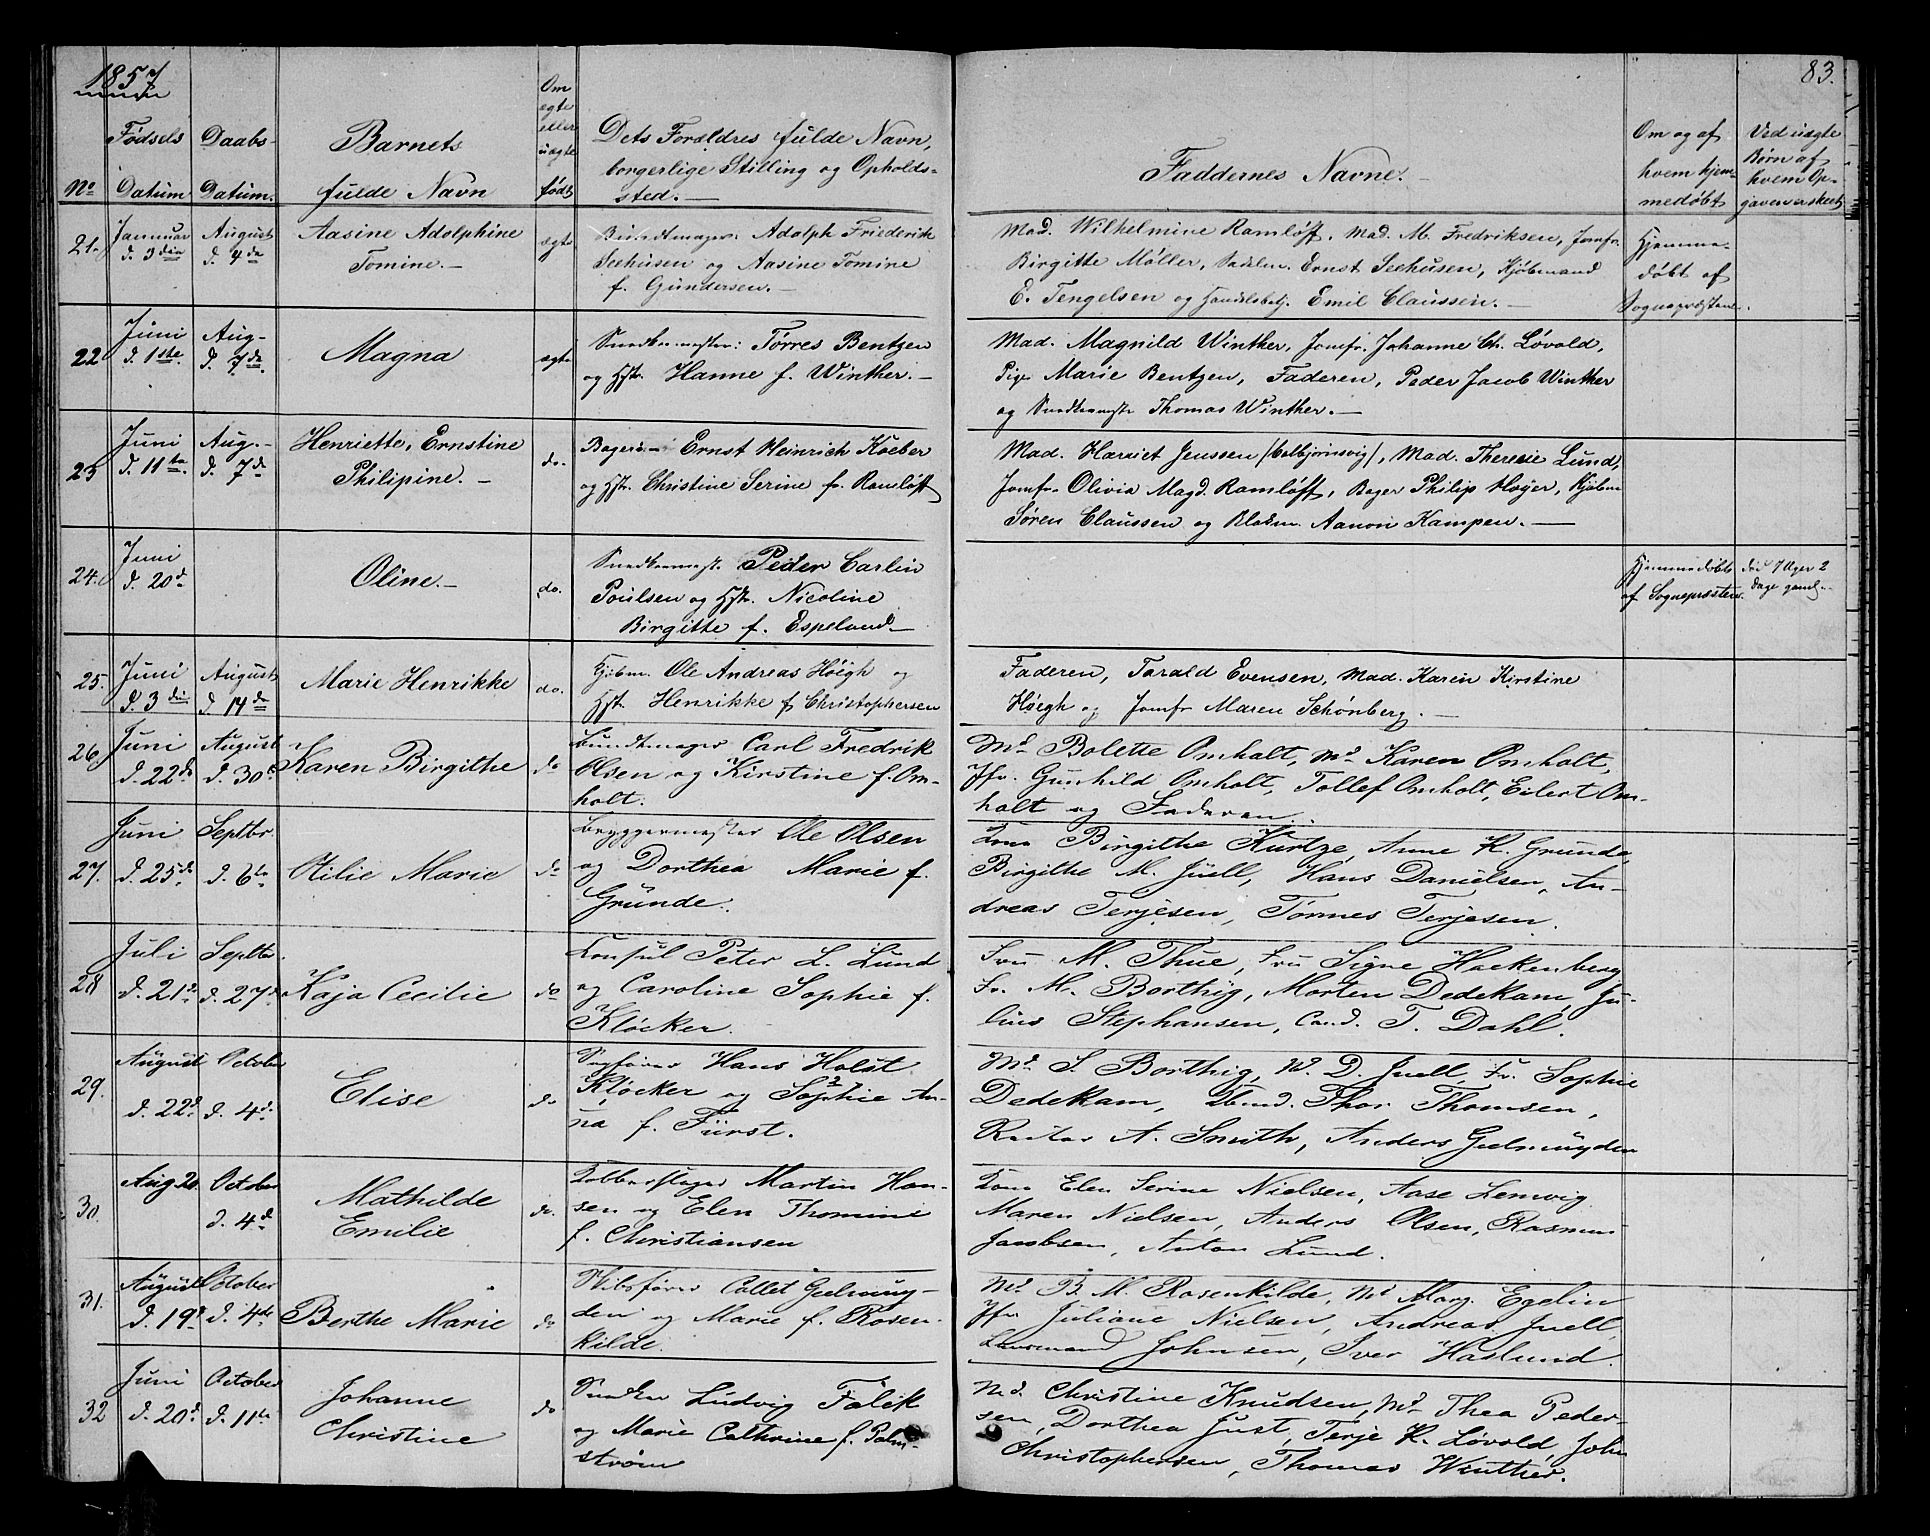 1857
83.
No
Fødsels Datum
Daabs- Datum.
Barnets fulde Navn
Om ægte eller uægte født
Dets Forældres fulde Navn, borgerlige Stilling og Opholds-sted.—
Faddernes Navne.—
Om og af hvem hjem-medøbt
Ved uægte Børn af hvem Op-
21. Januar d. 3die August d. 4de
Aasine Adolphine
Tomine.—
ægte
Bundtmager: Adolph Friederik
Seehusen og Aasine Tomine
f. Gundersen.—
Mad. Wilhelmine Ramløff, Mad. M. Fredriksen, Jomfr.
Birgitte Møller, Sadelm. Ernst Seehusen, Kjøbmand
E. Tengelsen og Handelsbetj. Emil Claussen.—
Hjemme-
døbt af
Sognepræsten.
22 Juni d. 1ste Aug- d. 7de
Magna
ægte
Snedkermester: Torres Bentzen
og Hstr. Hanne f. Winther.—
Mad. Magnild Winther, Jomfr. Johanne Ch. Løvold,
Pige Marie Bentzen, Faderen, Peder Jacob Winther
og Snedkermestr Thomas Winther.—
23 Juni d. 11te Aug.- d. 7de
Henriette, Ernstine
Philipine.—
do.
Bager:- Ernst Heinrich Koeber
og Hstr. Christine Serine f. Ramløff
Mad. Harriet Jenssen (Colbjørnsvig), Mad. Therese Lund,
Jomfr. Olivia Magd. Ramløff, Bager Philip Høyer, Kjøbm
Søren Claussen og Blokm. Aanon Kampen.—
24. Juni d. 20de
Oline.—
do.
Snedkermest. Peder Carlin
Poulsen og Hstr. Nicoline
Birgitte f. Espeland—
Hjemmedøbt
af Sognepræsten.
død 7 Uger 2
Dage gaml.
25. Juni d. 3die August d. 14de
Marie Henrikke
do.
Kjøbm. Ole Andreas Høegh og
Hstr. Henrikke f. Christophersen
Faderen, Tarald Evensen, Mad. Karen Kirstine
Høegh og Jomfr Maren Schønberg.—
26. Juni d. 22de August d. 30te
Karen Birgithe
do
Bundtmager Carl Fredrik
Olsen og Kirstine f. Om-
holt.
Md. Bolette Omholt, Md. Karen Omholt,
Jfr. Gunhild Omholt, Tollef Omholt, Eilert Om-
holt og Faderen.
27. Juni d. 25de Septbr. d. 6te
Otilie Marie
do
Bryggermester Ole Olsen
og Dorthea Marie f.
Grunde.
Kone Birgithe Kurtze, Anne K. Grunde,
Birgithe M. Juell, Hans Danielsen, An-
dreas Terjesen, Tørnes Terjesen.
28 Juli d. 21de Septbr d. 27de
Kaja Cecilie
do
Konsul Peter L. Lund
og Caroline Sophie f.
Kløcker.
Fru M. Thue, Fru Signe Hackenberg
Fr. M. Borthig, Morten Dedekam, Ju-
lius Stephansen, Cand. T. Dahl.
29. August d. 22de October d. 4de
Elise
do
Hans Holst
Kløcker og Sophie An-
na f. Fürst.
Md. S. Borthig, Md. D. Juell, Fr. Sophie
Dedekam, Thor Thomsen,
Rector A. Smith, Anders Gjelmuyden
30. Aug 20. October d. 4de
Mathilde
Emilie
do.
Kobberslager Martin Han-
sen og Elen Thomine
f. Christiansen
Kone Elen Serine Nielsen, Aase Lemvig
Maren Nielsen, Anders Olsen, Rasmus
Jacobsen, Anton Lund.
31. August d. 19de October d. 4de
Berthe Marie
do
Skibsfører Collet Gjelmuy-
den og Marie f. Rosen-
kilde.
Md. B. M. Rosenkilde, Md. Marg. Egelin
Jfr. Juliane Nielsen, Andreas Juell,
Johnsen, Iver Haslund.
32 Juni d. 20de October d. 11te
Johanne
Christine
do
Snedker Ludvig Falck
og Marie Cathrine f. Palm-
strøm
Md. Christine Knudsen, Md. Thea Peder-
sen, Dorthea Just, Terje K. Løvold, John
Christophersen, Thomas Winther.